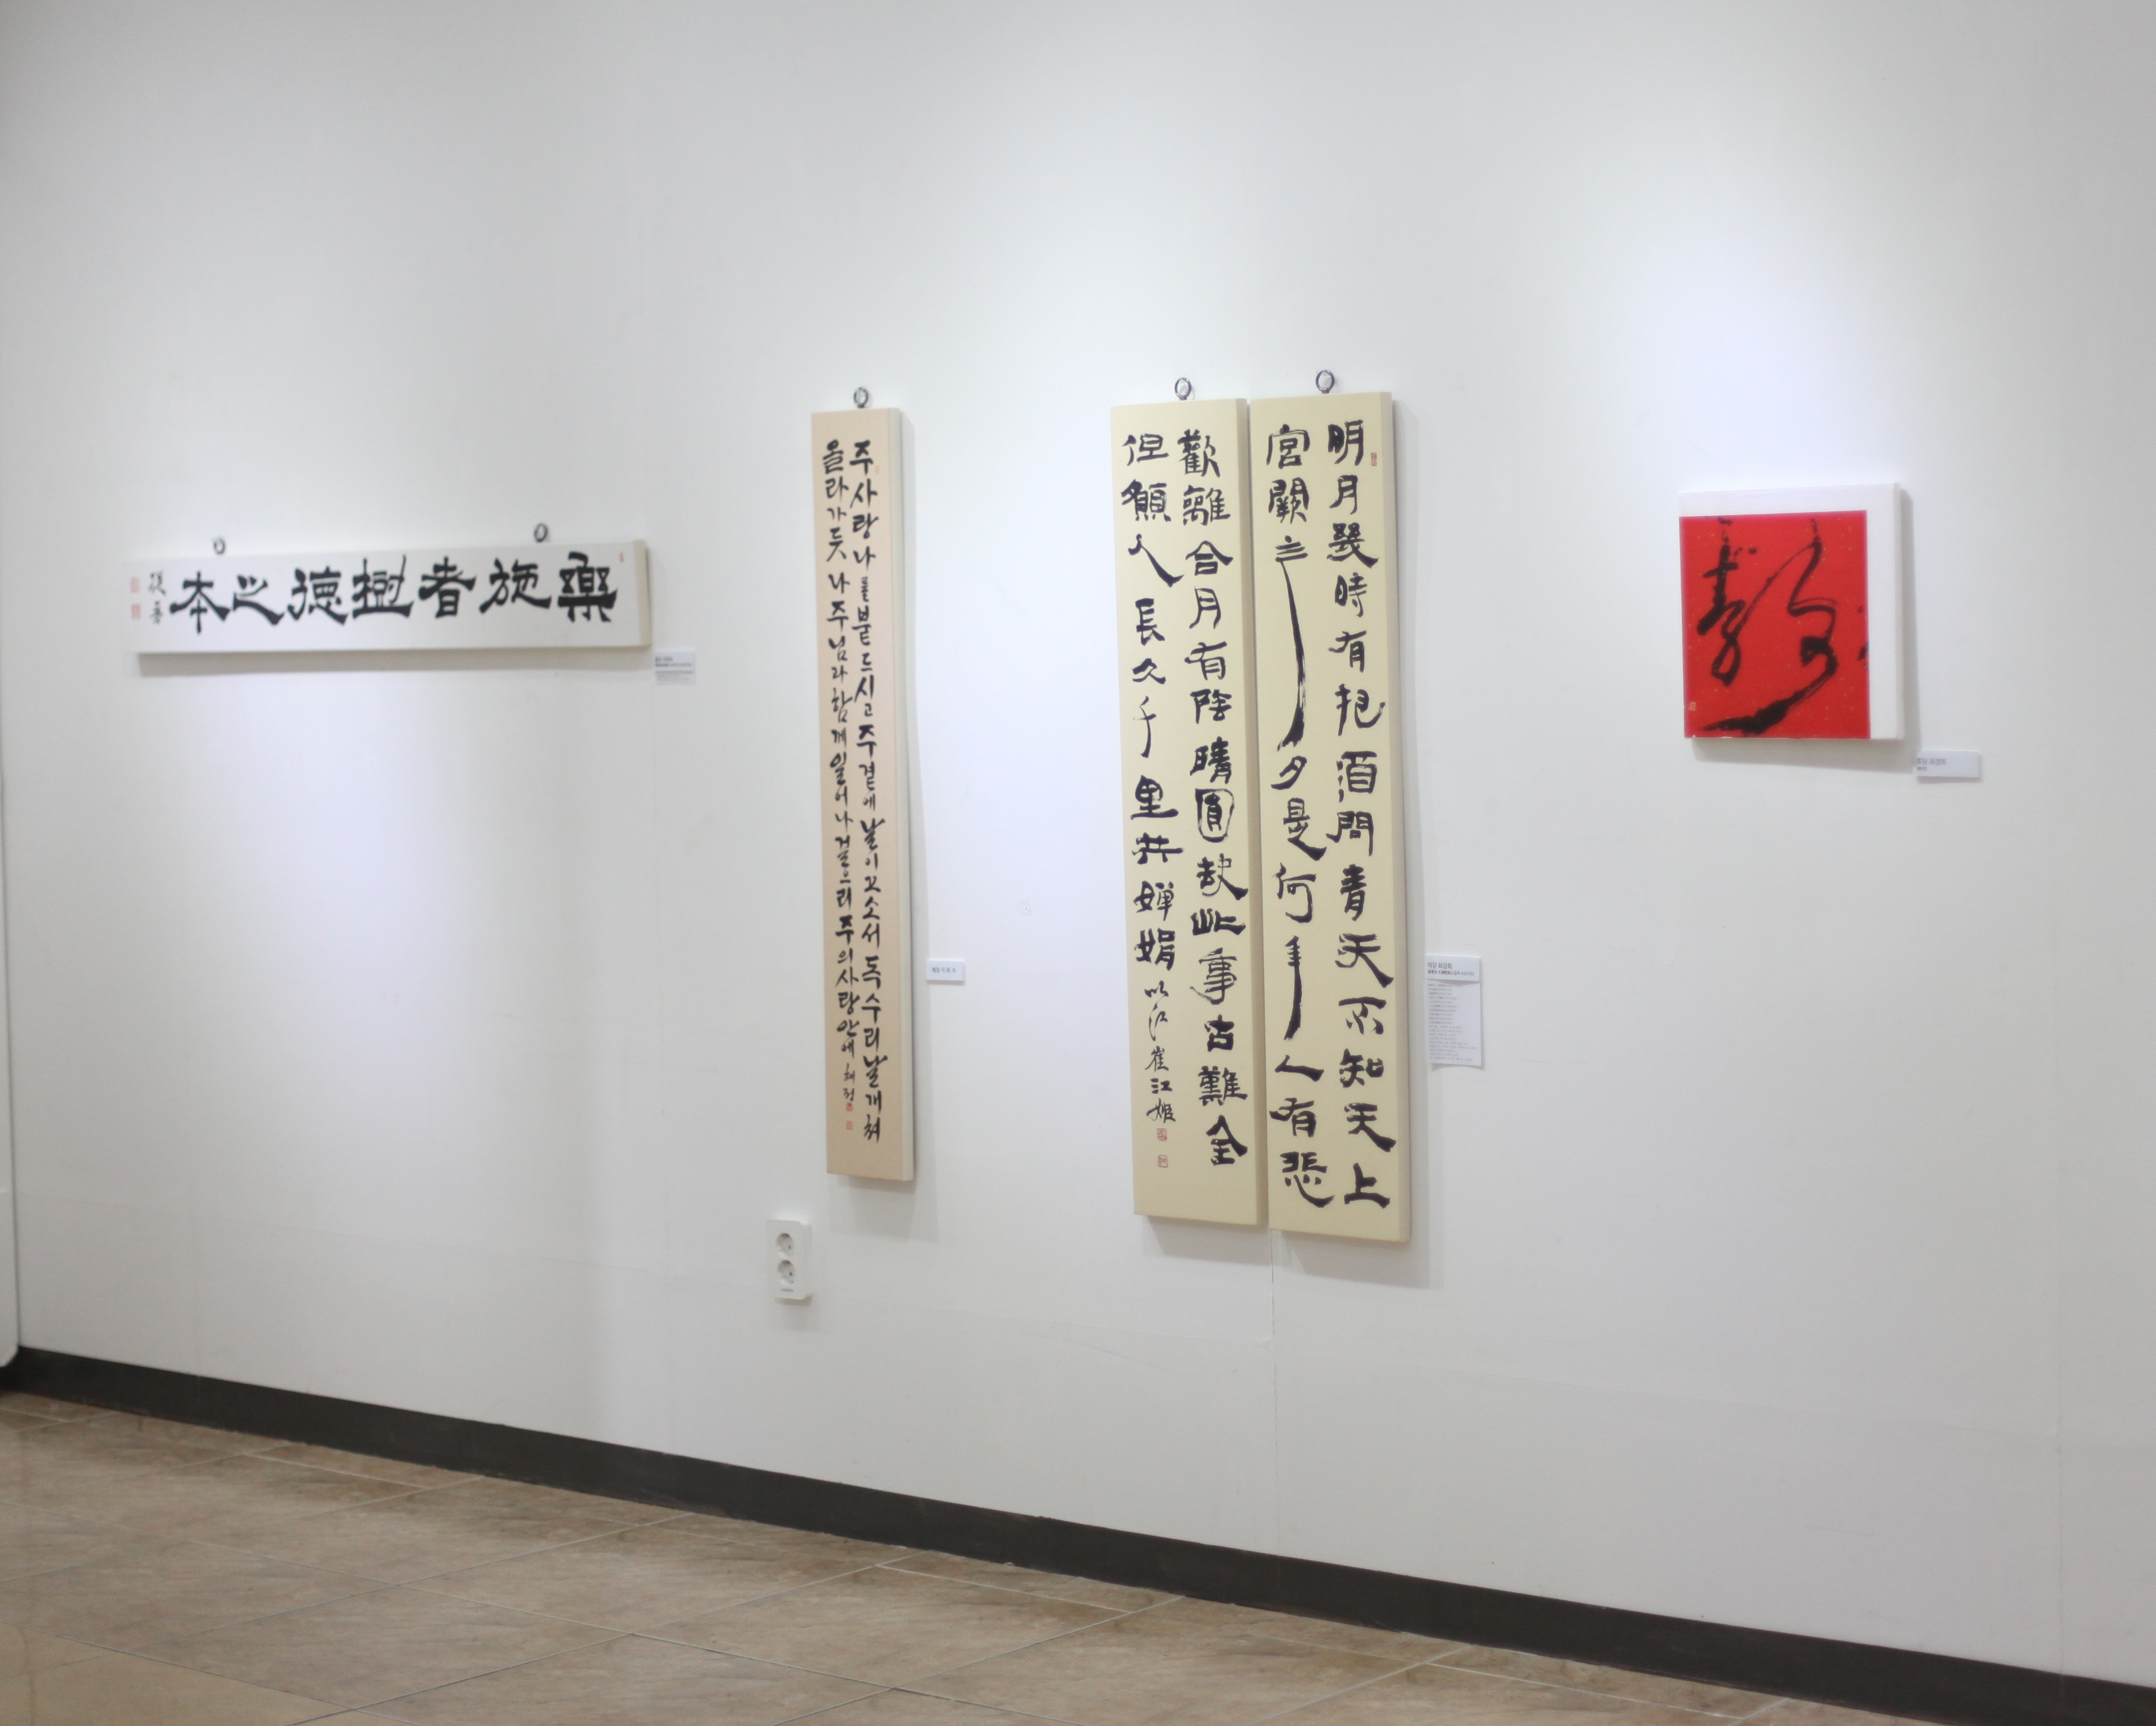 樂施者樹德之本
주사랑 나를 붙드시고 주곁에 날이끄소서 독수리 날개쳐
올라가듯 나 주님과 함께 일어나 걸으리 주의 사랑안에
明月幾時有把酒問青天不知天上
宮闕今夕是何年人有悲
歡離合月有陰晴圓缺此事古難全
但願人長久千里共嬋娟
崔江姬